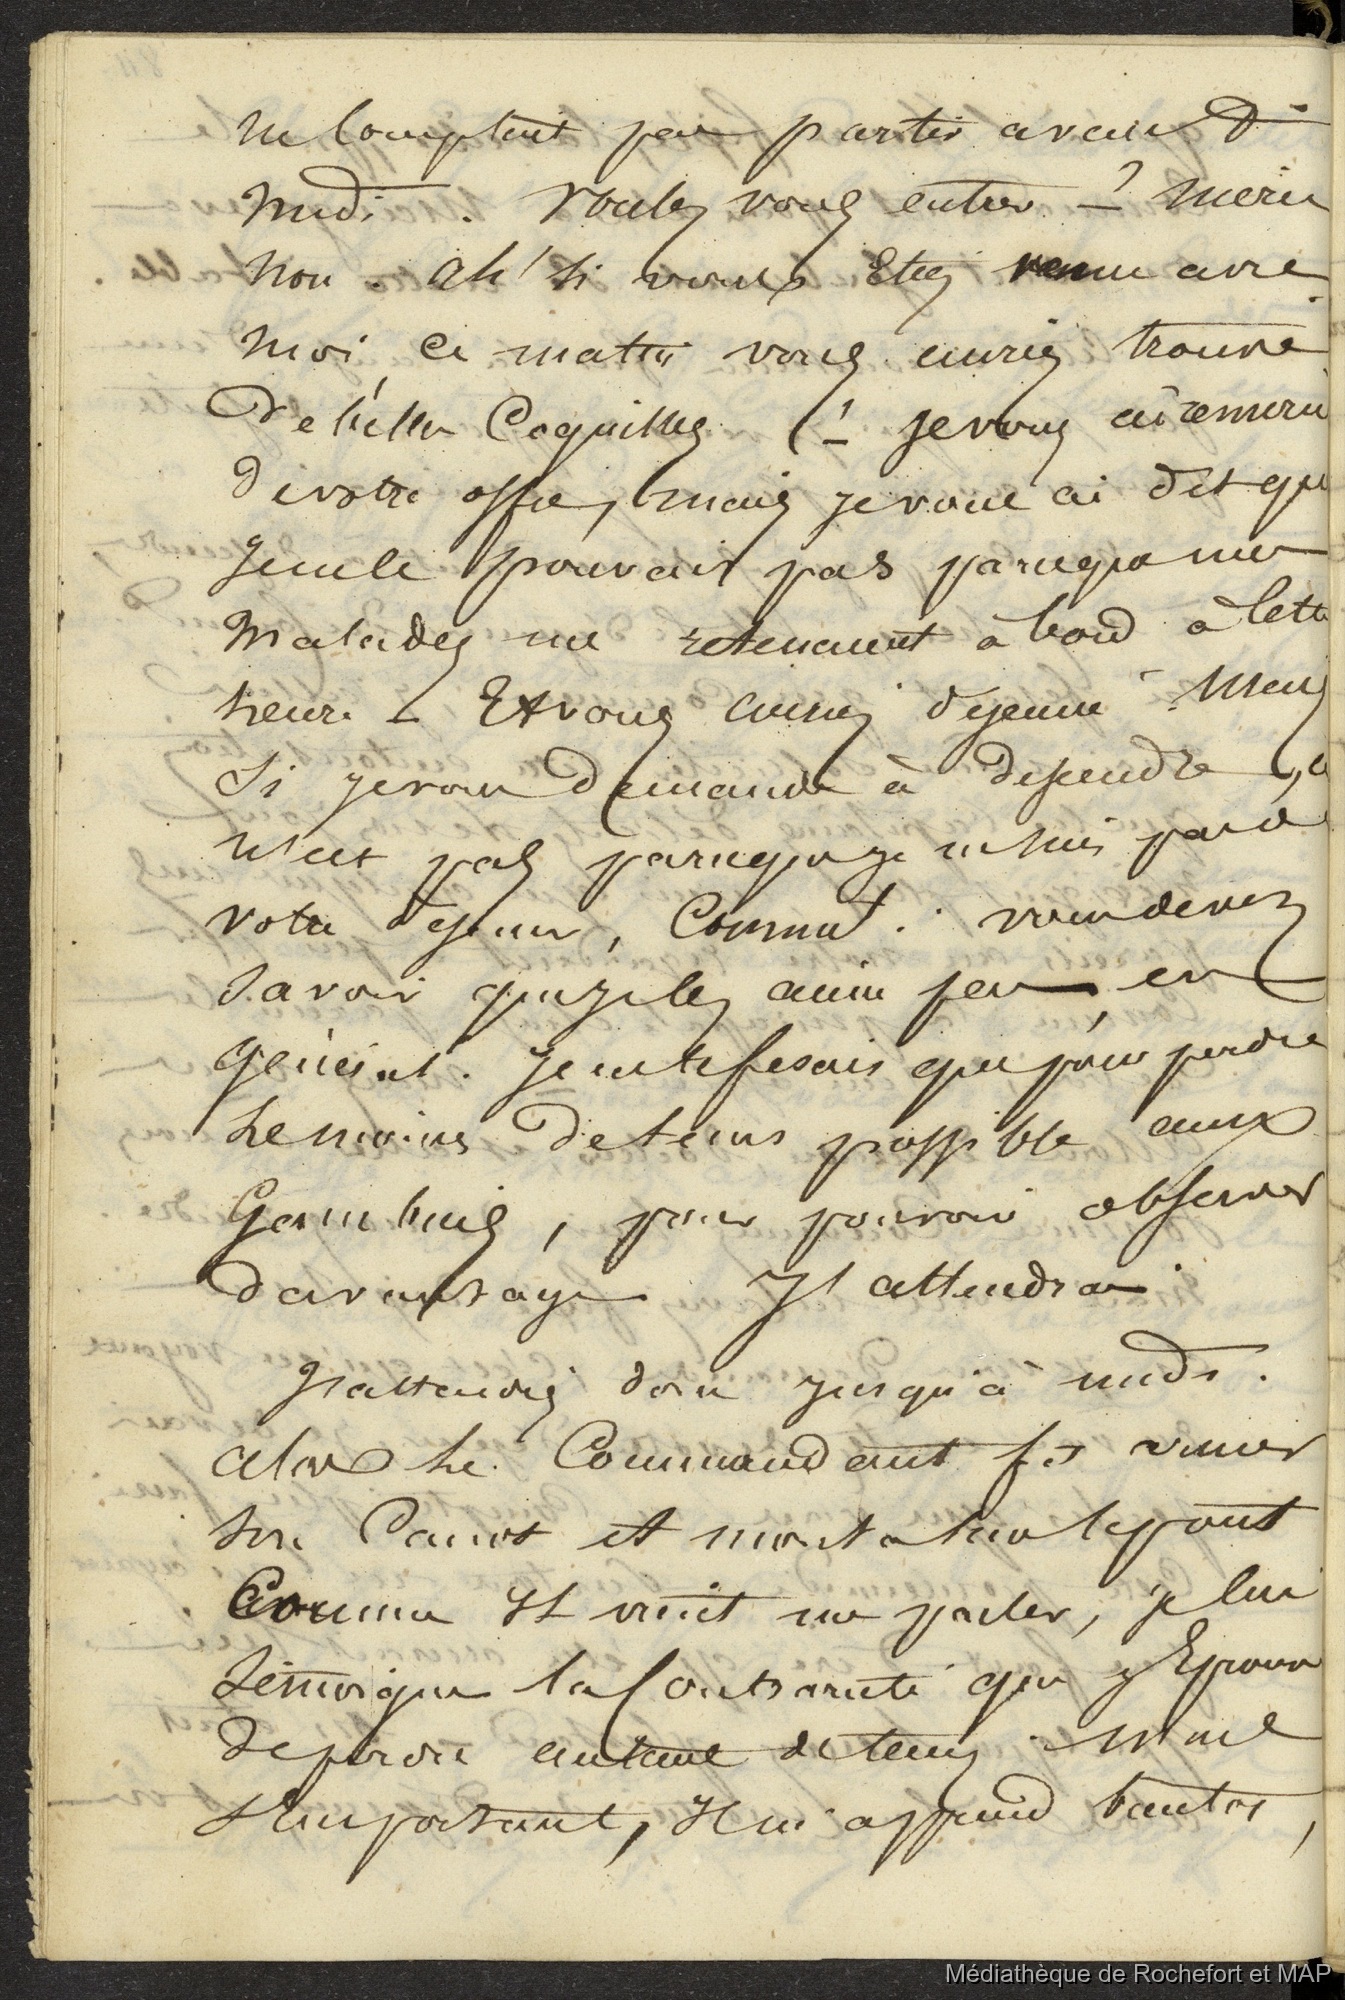 ne comptent pas partir avant
midi. Voulez vous entrer - ! merci
non. ah! si vous Etiez venu avec
moi, ce matin vous auriez trouvé
de belles Coquilles ! - je vous ai remercié
de votre offre, mais je vous ai dit que
je ne le pouvais pas parceque mes
Malades me retenaient à bord à cette
heure - Et vous auriez déjeuné. Mais
si je vous demande à descendre, ce
n'est pas parceque je ne suis pas à
votre déjeuner, Comme: vous devez
savoir que je les aime peu, en
général. Je ne le fesais que pour perdre
le moins de tems possible aux
Gambiers, pour pouvoir observer
davantage Il attendra.
J'attendis donc jusqu'à midi.
alors le Commandant fit armer
son Canot et monta sur le pont
Comme Il vint me parler, je lui
témoigne la contrariété que j'Eprouve
de perdre autant de tems.
S'emportant, Il m'apprend bientôt,
Médiathèque de Rochefort et MAP